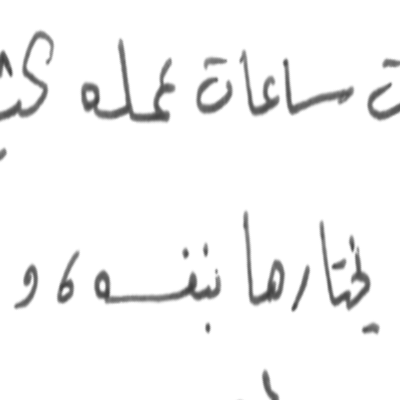 ساعات عمله
يختارها بنفسه ، و